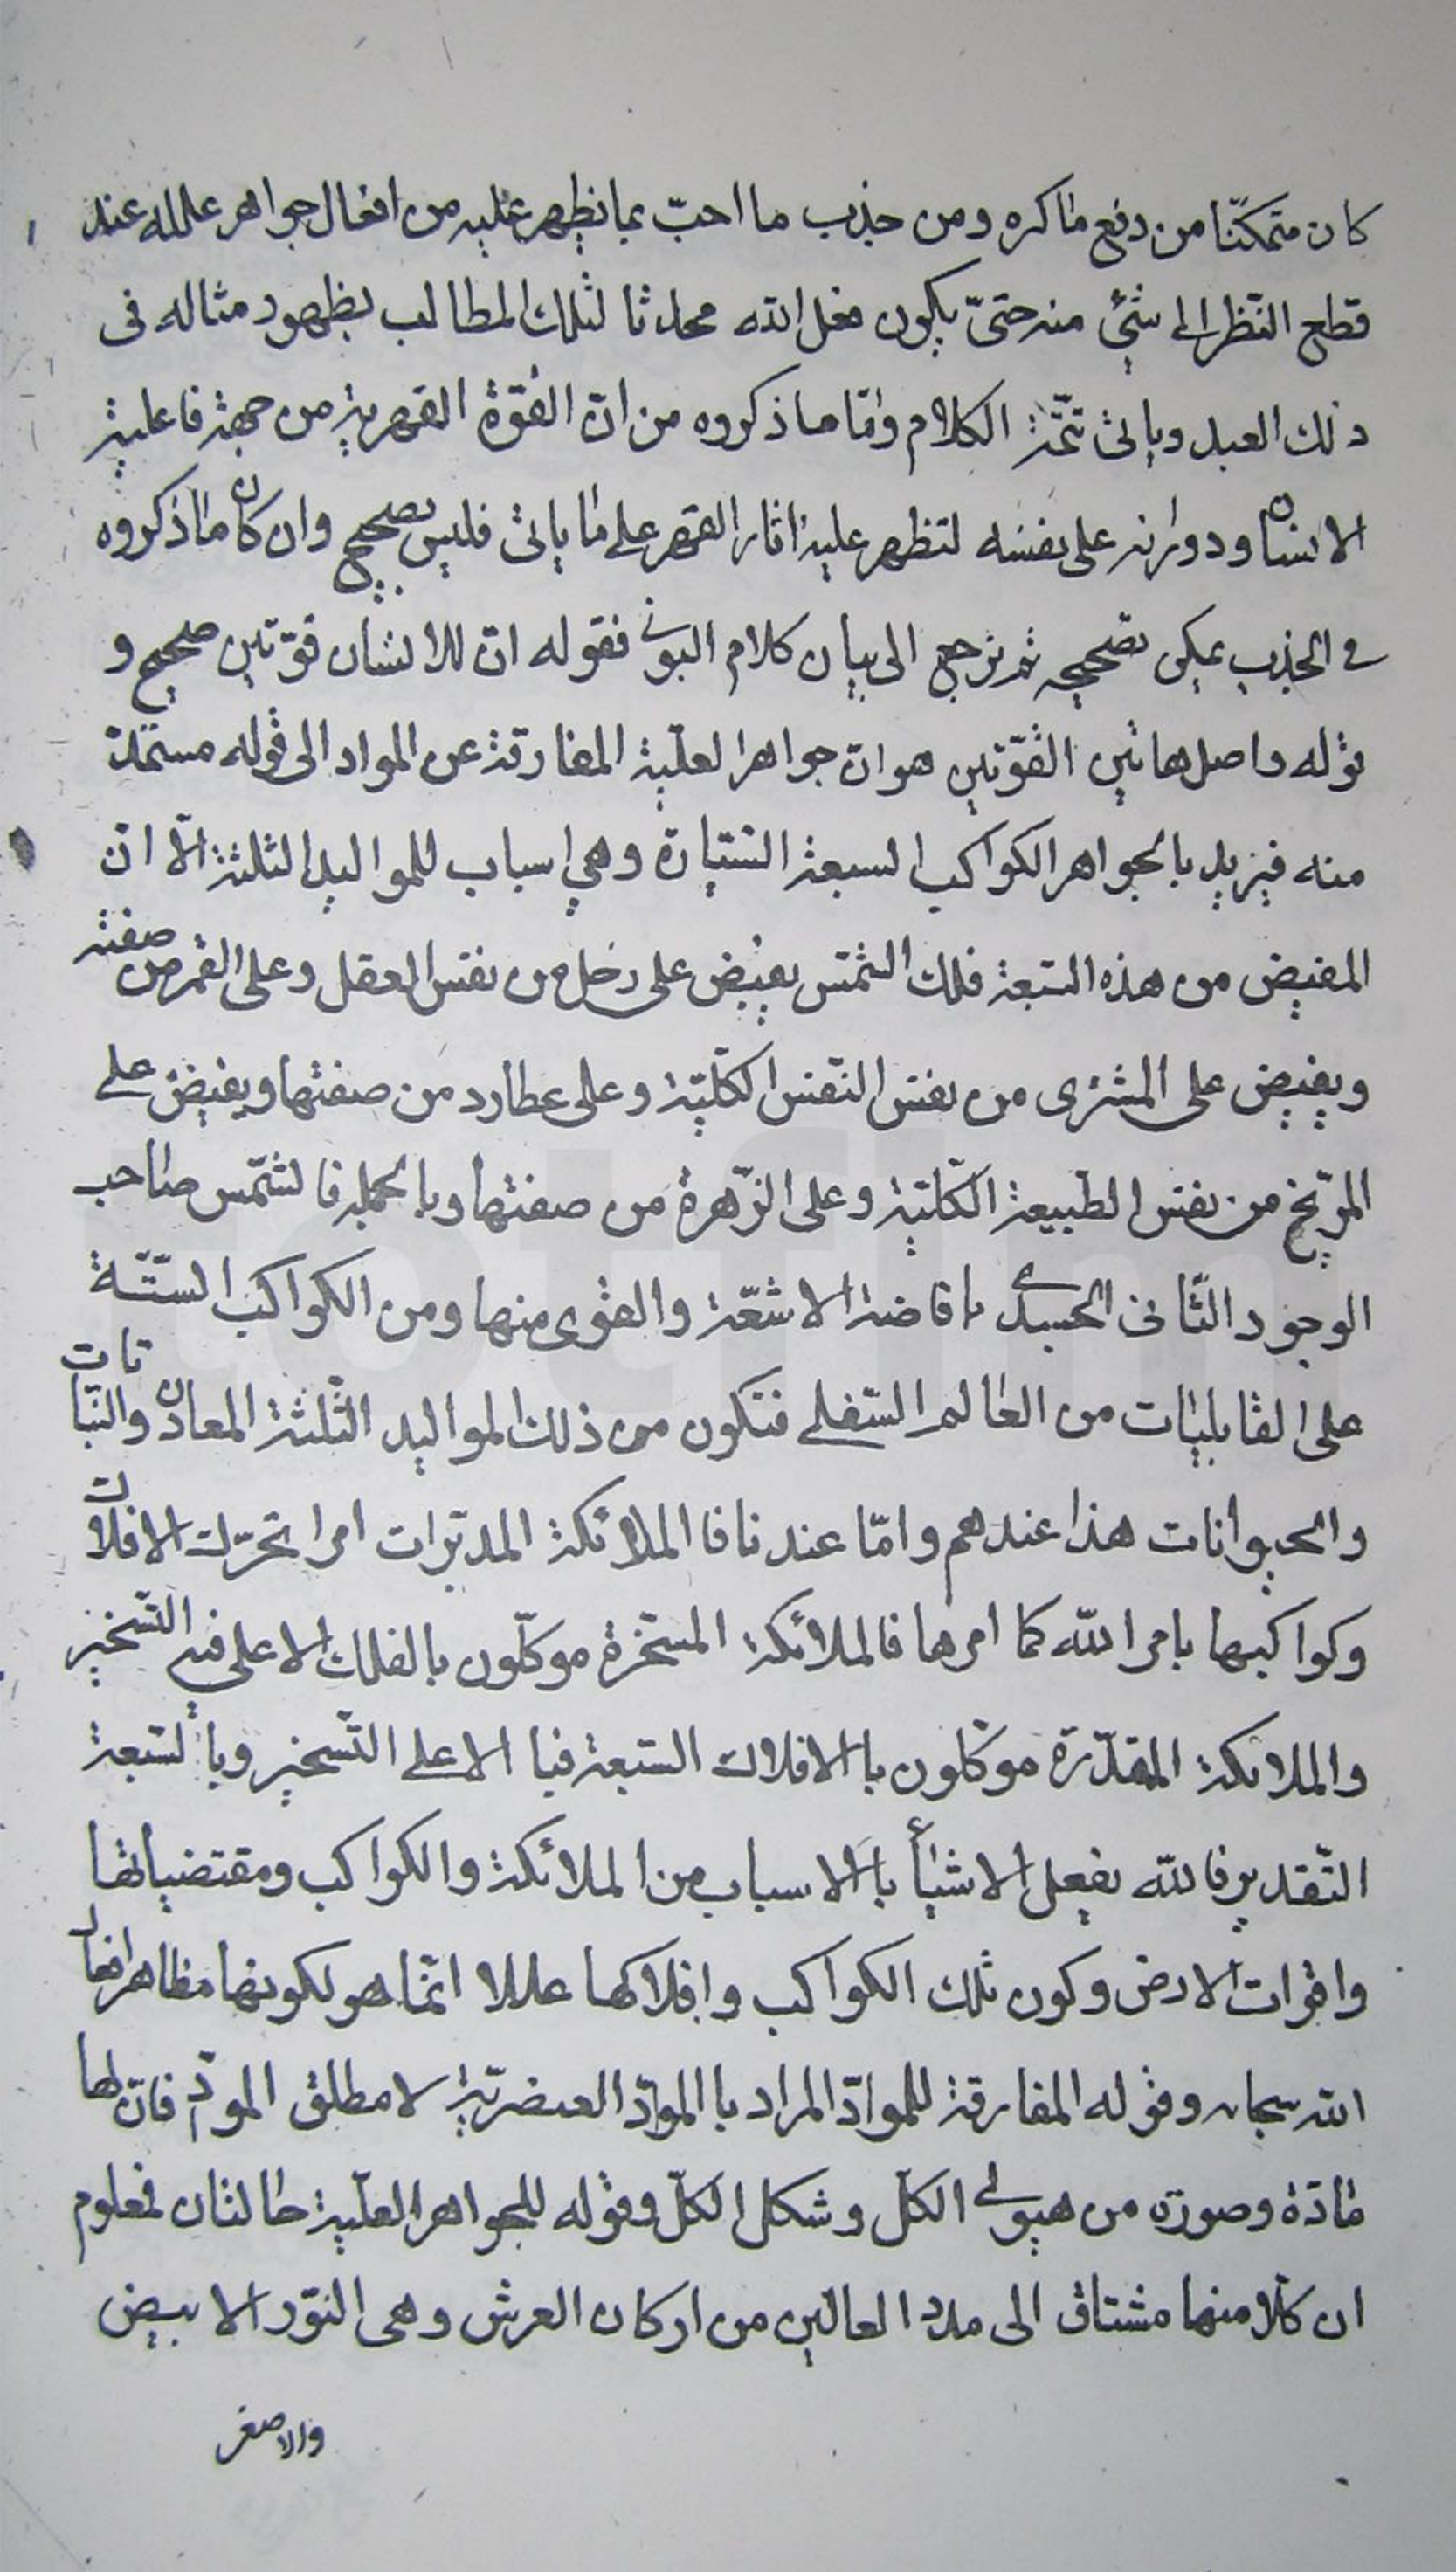 كان متمكّنا من دفع ما كره ومن جذب ما احبّ بما يظهر عليه من افعال جواهر علله عند
قطع النّظر الى شئ منه حتىّ يكون فعل الله محدثا لتلك المطالب بظهور مثاله فى
ذلك العبد وياتى تتمّة الكلام وامّا ما ذكروه من انّ القوّة القهرية من جهة فاعلية
الانسان ودورانه على نفسه لتظهر عليه اثار القهر على ما ياتى فليس بصحيح وان كان ما ذكروه
فى الجذب يمكن تصحيحه ثم نرجع الى بيان كلام البونى فقوله انّ للانسان قوّتين صحيح و
قوله واصل هاتين القوّتين هو انّ جواهر العلّية المفارقة عن المواد الى قوله مستمدّة
منه فيريد بالجواهر الكواكب السبعة السّيّارة وهي اسباب للمواليد الثلثة الّا انّ
المفيض من هذه السّبعة فلك الشّمس يفيض على زحل من نفس العقل وعلى القمر من صفته
ويفيض على المشترى من نفس النّفس الكلّيّة وعلى عطارد من صفتها ويفيض على
المرّيخ من نفس الطّبيعة الكلّيّة وعلى الزّهرة من صفتها وبالجملة فالشّمس صاحب
الوجود الثّانى الجسدى بافاضة الاشعّة والقوى منها ومن الكواكب السّتّة
على القابليات من العالم السّفلى فتكون من ذلك المواليد الثّلثة المعادن والنّباتات
والحيوانات هذا عندهم وامّا عندنا فا الملائكة المدبّرات امرا تحرّك الافلاك
وكواكبها بامر الله كما امرها فالملائكة المسخّرة موكّلون بالفلك الاعلى فيه التّسخير
والملائكة المقدّرة موكّلون باالافلاك السّبعة فبا الاعلى التّسخير وبالسّبعة
التّقدير فالله يفعل الاشيأ باالاسباب من الملائكة والكواكب ومقتضياتها
واقوات الارض وكون تلك الكواكب وافلاكها عللا انّما هو لكونها مظاهر افعال
الله سبحانه وقوله المفارقة للموادّ المراد باالموادّ العنصريّة لا مطلق الموادّ فانّ لها
مادّة وصورة من هيولى الكلّ وشكل الكلّ وقوله للجواهر العلّية حالتان فمعلوم
ان كلّا منها مشتاق الى مدد العالين من اركان العرش وهى النّور الابيض
والاصفر